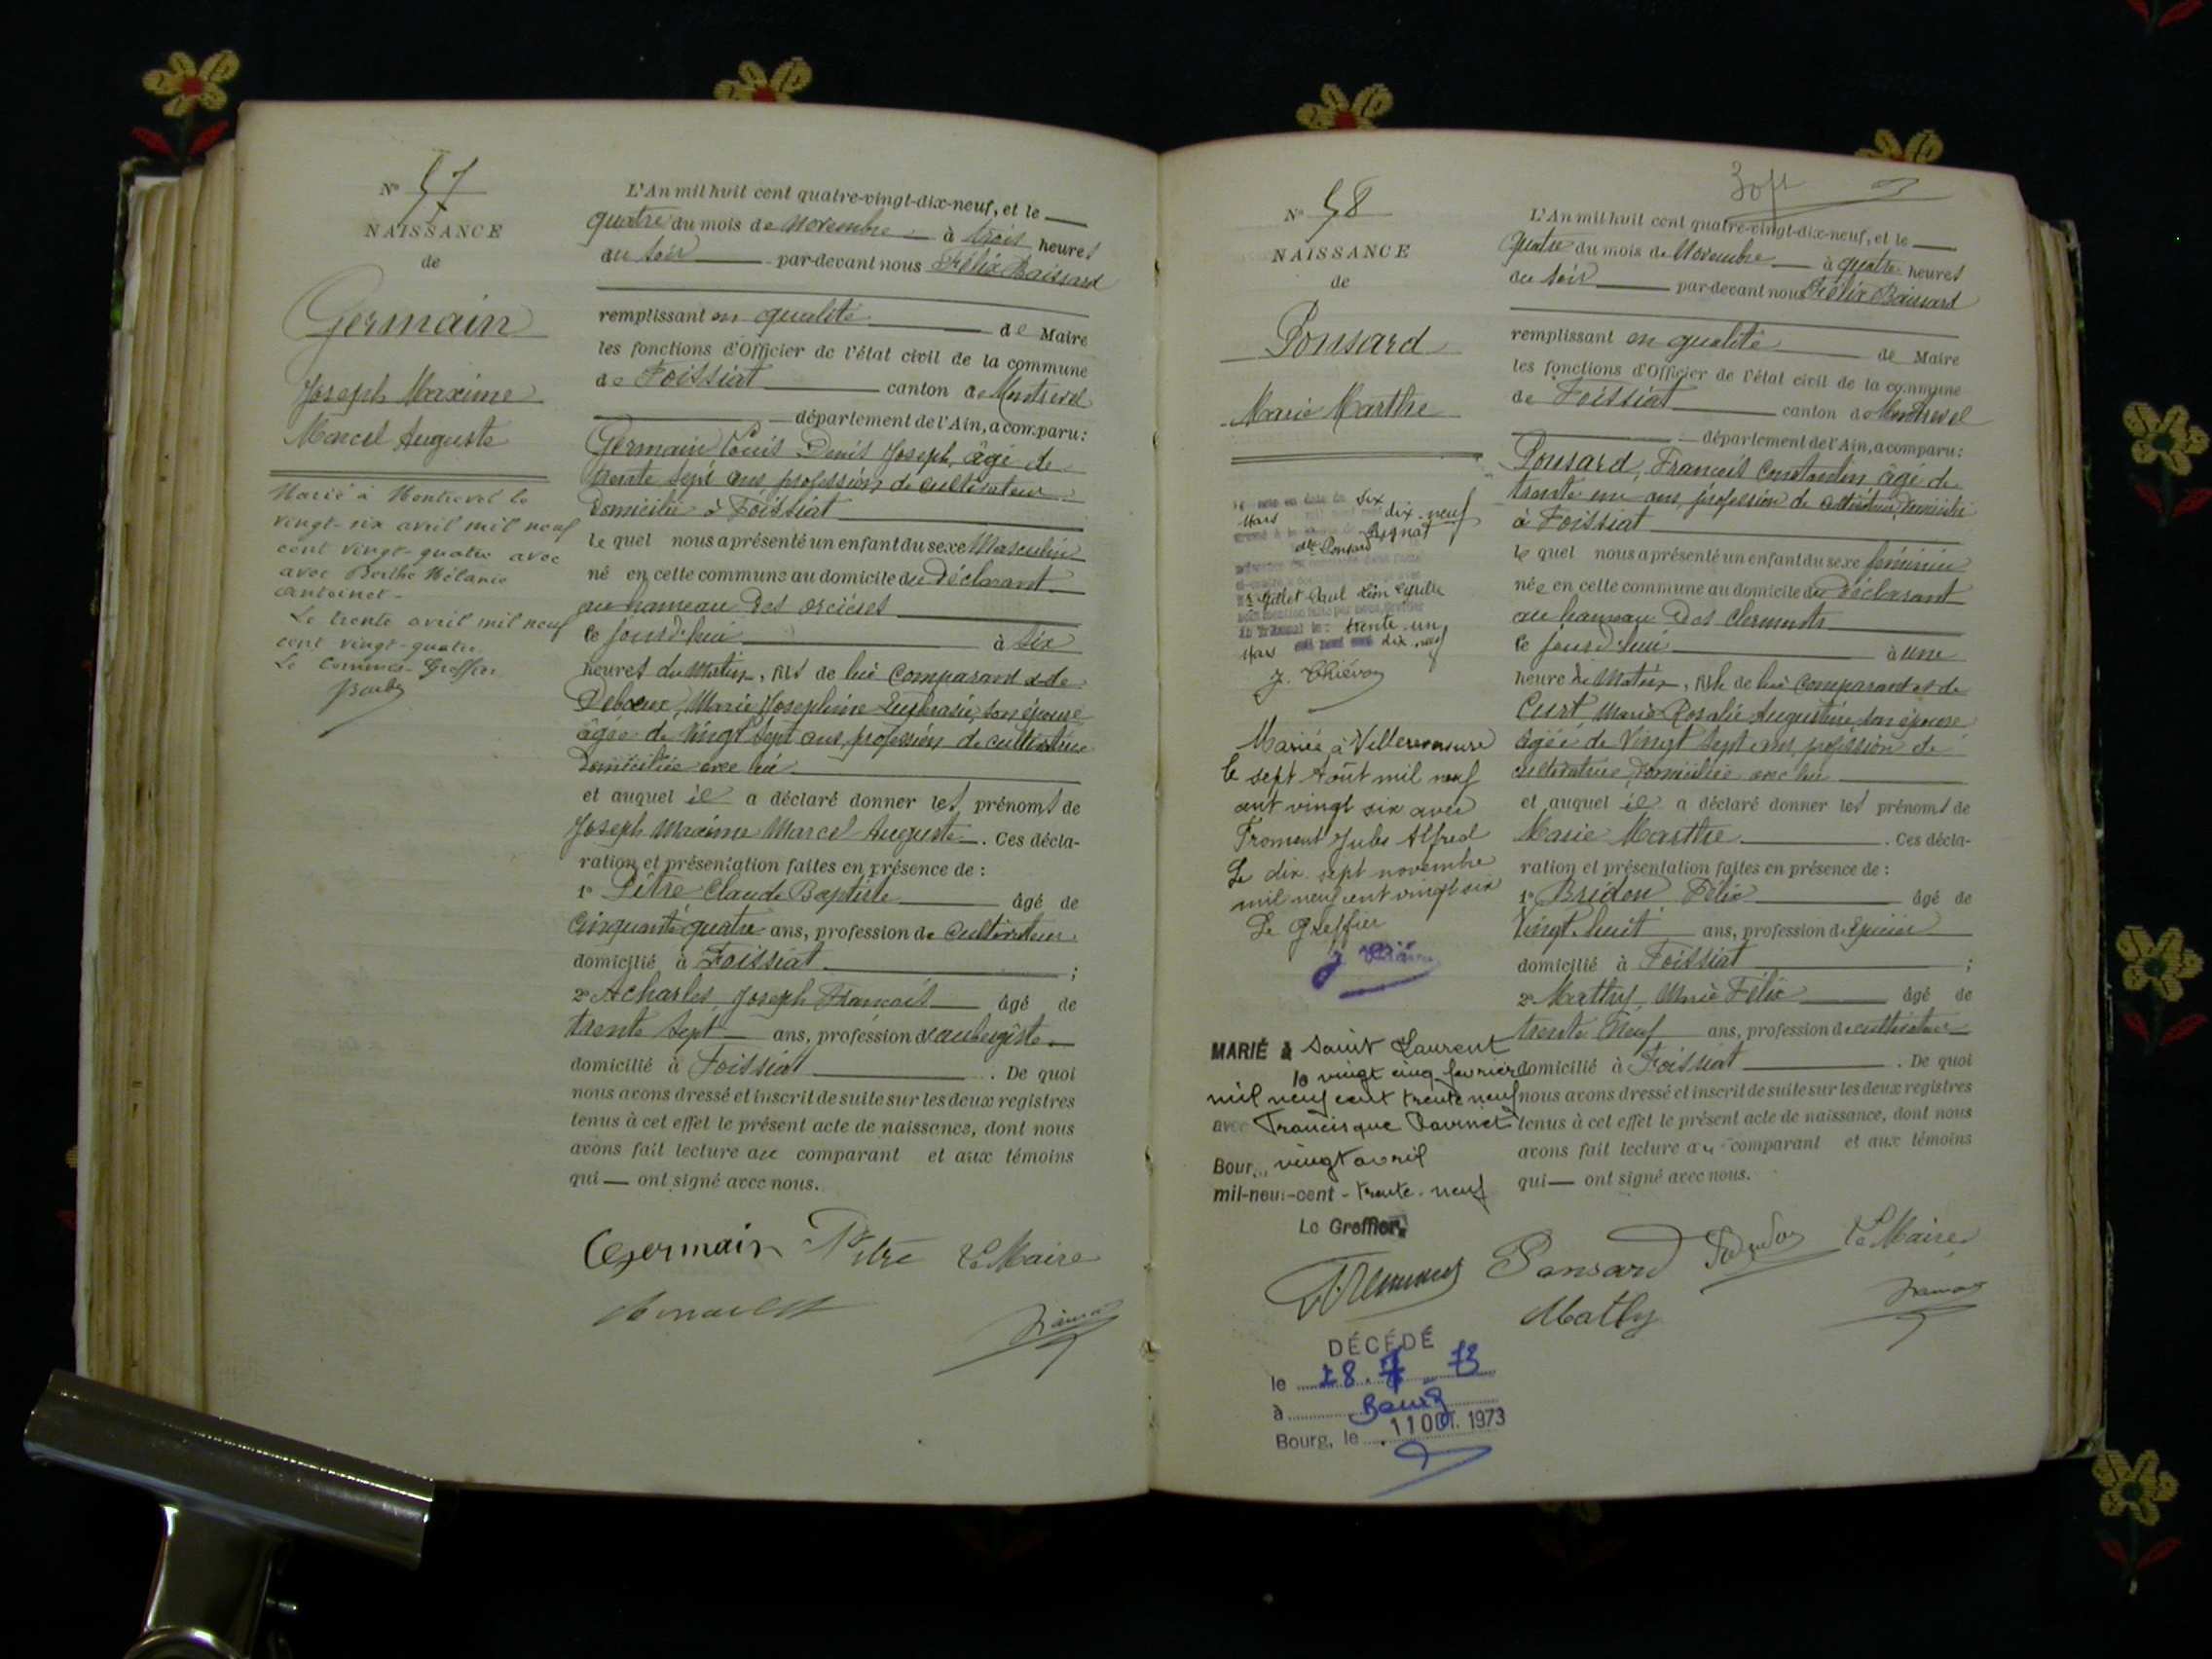 N° 57
NAISSANCE
de
Germain
Joseph Maxime
Marcel Auguste
Marié à Montrevel le
vingt-six avril mil neuf
cent vingt-quatre avec
avec Berthe Mélanie
Antoinet-
Le trente avril mil neuf
cent vingt-quatre
Le Commis-Greffier
L'An mil huit cent quatre-vingt-dix-neuf, et le
quatre du mois de Novembre à trois heures
du soir par-devant nous Félix Baissard
remplissant en qualité de Maire
les fonctions d'Officier de l'état civil de la commune
de Foissiat canton de Montrevel
département de l'Ain, a comparu:
Germain Louis Denis Joseph, âgé de
trente sept ans profession de cultivateur
domicilié à Foissiat
le quel nous a présenté un enfant du sexe Masculin
né en cette commune au domicile du Déclarant
au hameau des orcières
le jourd'hui à six
heures du Matin, fils de lui Comparant & de
Marie Josephine Euphrasie, son épouse
âgée de Vingt Sept ans, profession de cultivatrice
Domiciliée avec lui
et auquel il a déclaré donner les prénoms de
Joseph Maxime Marcel Auguste. Ces décla-
ration et présentation faites en présence de :
1° Pitre Claude Baptiste âgé de
Cinquante quatre ans, profession de Cultivateur
domicilié à Foissiat ;
2° Acharles, Joseph François âgé de
trente sept ans, profession d'aubergiste
domicilié à Foissiat. De quoi
nous avons dressé et inscrit de suite sur les deux registres
tenus à cet effet le présent acte de naissance, dont nous
avons fait lecture au comparant et aux témoins
qui — ont signé avec nous.
Germain Pitre Le Maire
N° 58
NAISSANCE
de
Ponsard
Marie Marthe
en date du Six
Mars dix-neuf
Ponsard
Gillet Paul Léon
trente-un
Mars dix-neuf
J. Thiévon
Mariée à Villereversure
le sept Août mil neuf
cent vingt six avec
Froment Jules Alfred
Le dix-sept novembre
mil neuf cent vingt six
Le Greffier
MARIÉ à Saint Laurent
le vingt cinq février
mil neuf cent trente neuf
avec Francisque Ravinet
Bourg, vingt avril
mil-neuf-cent-trente-neuf
Le Greffier,
DÉCÉDÉ
le 28.7.73
à Bourg
Bourg, le 11 OCT. 1973
L'An mil huit cent quatre-vingt-dix-neuf, et le
quatre du mois de Novembre à quatre heures
du soir par-devant nous Félix Baissard
remplissant en qualité de Maire
les fonctions d'Officier de l'état civil de la commune
de Foissiat canton de Montrevel
département de l'Ain, a comparu:
Ponsard, François Constantin âgé de
trente un ans, profession de cultivateur, domicilié
à Foissiat
le quel nous a présenté un enfant du sexe féminin
née en cette commune au domicile du Déclarant
au hameau Des Clermonts
le jourd'hui à une
heure du Matin, fille de lui comparant et de
Curt, Marie Rosalie Augustine son épouse
âgée de Vingt sept ans, profession de
cultivatrice, domiciliée avec lui
et auquel il a déclaré donner les prénoms de
Marie Marthe. Ces décla-
ration et présentation faites en présence de :
1° Bridon Félix âgé de
Vingt-huit ans, profession d'Epicier
domicilié à Foissiat ;
2° Marie Félix âgé de
trente Neuf ans, profession de cultivateur
domicilié à Foissiat. De quoi
nous avons dressé et inscrit de suite sur les deux registres
tenus à cet effet le présent acte de naissance, dont nous
avons fait lecture au comparant et aux témoins
qui — ont signé avec nous.
Ponsard Le Maire
Mathy